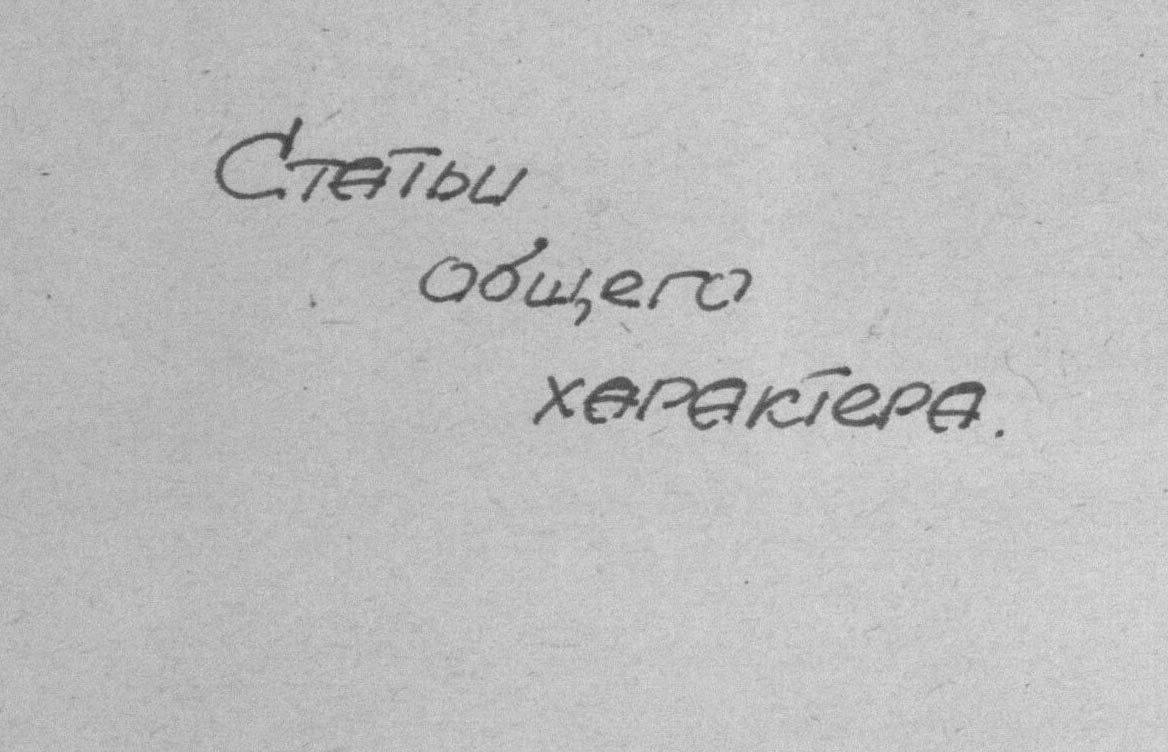 Статьи
общего
характера.